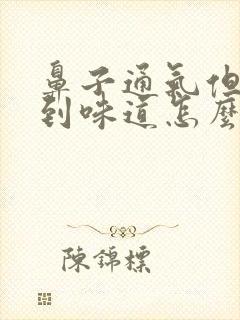 鼻子通氣但
到味道怎麼
陳錦標